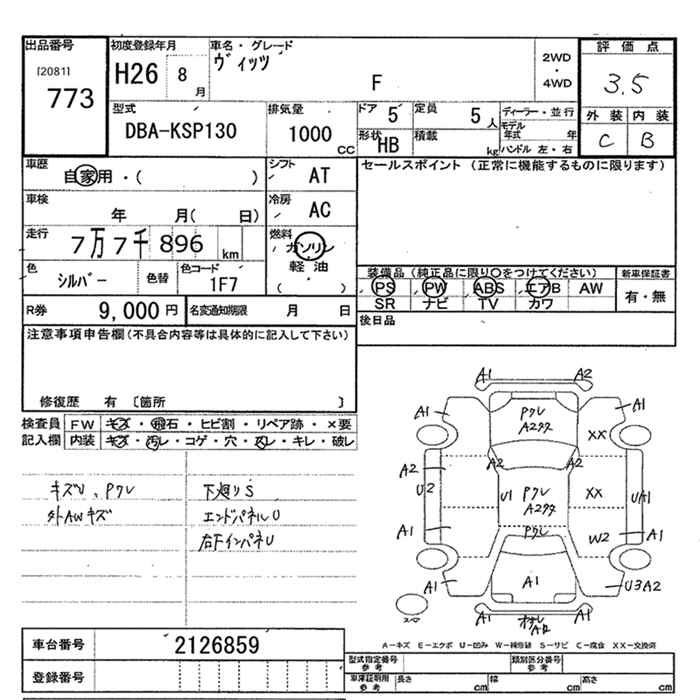 出品番号
[2081]
773
初度登録年月
H26 8 月
車名・グレード
ヴィッツ
F
2WD
・
4WD
評価点
3.5
外装 内装
C B
型式
DBA-KSP130
排気量
1000 CC
ドア 5
形状 HB
定員 5 人
積載 kg
ディーラー・並行
モデル年式 年
ハンドル 左・右
車歴
自家用・( )
シフト
AT
車検
年 月( 日)
冷房
AC
走行
7万7千896 km
燃料
ガソリン
軽油
( )
色
シルバー
色替
色コード
1F7
R券 9,000円
名変通知期限 月 日
セールスポイント (正常に機能するものに限ります)
装備品 (純正品に限り○をつけてください)
PS PW ABS エアB AW
SR ナビ TV カワ
新車保証書
有・無
後日品
注意事項申告欄(不具合内容等は具体的に記入して下さい)
修復歴 有 [箇所 ]
検査員記入欄
FW キズ・飛石・ヒビ割・リペア跡・×要
内装 キズ・汚レ・コゲ・穴・スレ・キレ・破レ
キズU、Pクレ
外AWキズ
下廻りS
エンドパネルU
右FインパネU
A1 A2
A1 A1
Pクレ
A2タタ
XX
A2 A2 A2
U2 U1
Pクレ
A2タタ
XX UA1
A1 Pクレ W2 A1
A1 A1 U3A2
A1 A2
A－キズ E－エクボ U－凹み W－補修跡 S－サビ C－腐食 XX－交換済
車台番号 2126859
登録番号
型式指定番号
参考
類別区分番号
参考
車庫証明用
参考
長さ cm 幅 cm 高さ cm